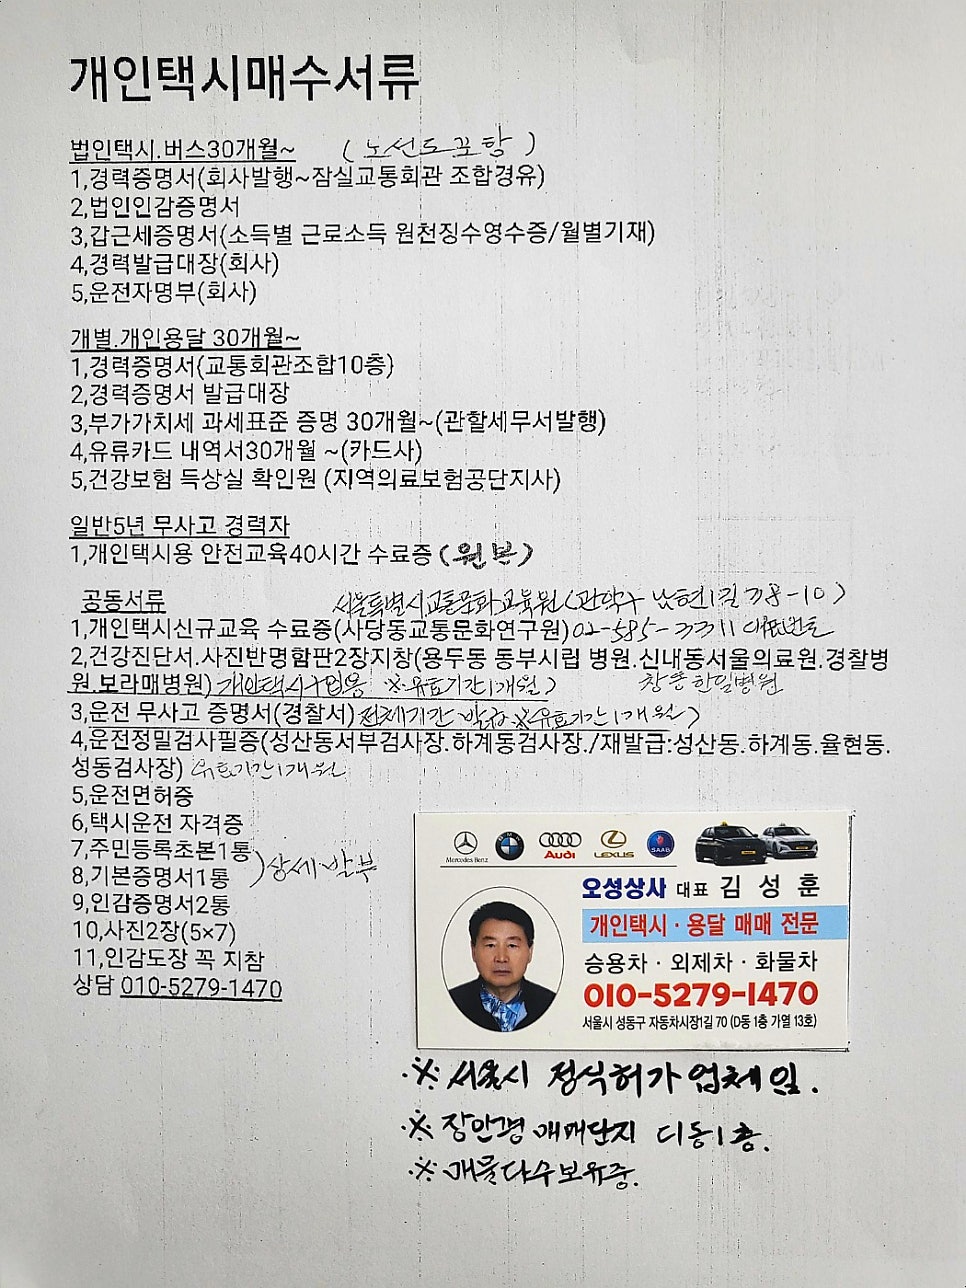 개인택시매수서류
법인택시.버스30개월~ (노선도포함)
1,경력증명서(회사발행~잠실교통회관 조합경유)
2,법인인감증명서
3,갑근세증명서(소득별 근로소득 원천징수영수증/월별기재)
4,경력발급대장(회사)
5,운전자명부(회사)
개별.개인용달 30개월~
1,경력증명서(교통회관조합10층)
2,경력증명서 발급대장
3,부가가치세 과세표준 증명 30개월~(관할세무서발행)
4,유류카드 내역서30개월 ~(카드사)
5,건강보험 득상실 확인원 (지역의료보험공단지사)
일반5년 무사고 경력자
1,개인택시용 안전교육40시간 수료증 (원본)
공동서류 서울특별시교통문화교육원(관악구 남현1길 78-10)
1,개인택시신규교육 수료증(사당동교통문화연구원) 02-585-7711 대표번호
2,건강진단서.사진반명함판2장지창(용두동 동부시립 병원.신내동서울의료원.경찰병
원.보라매병원) 개인택시구입용 ※유효기간1개월) 창동한일병원
3,운전 무사고 증명서(경찰서) 전체기간 발급 ※유효기간1개월)
4,운전정밀검사필증(성산동서부검사장.하계동검사장./재발급:성산동.하계동.율현동.
성동검사장) 유효기간1개월
5,운전면허증
6,택시운전 자격증
7,주민등록초본1통
8,기본증명서1통 )상세.발부
9,인감증명서2통
10,사진2장(5×7)
11,인감도장 꼭 지참
상담 010-5279-1470
Mercedes-Benz BMW Audi LEXUS SAAB
오성상사 대표 김성훈
개인택시·용달 매매 전문
승용차·외제차·화물차
010-5279-1470
서울시 성동구 자동차시장1길 70 (D동 1층 가열 13호)
※ 서울시 정식허가업체임.
※ 장안평매매단지 디동1층.
※ 매물다수보유중.